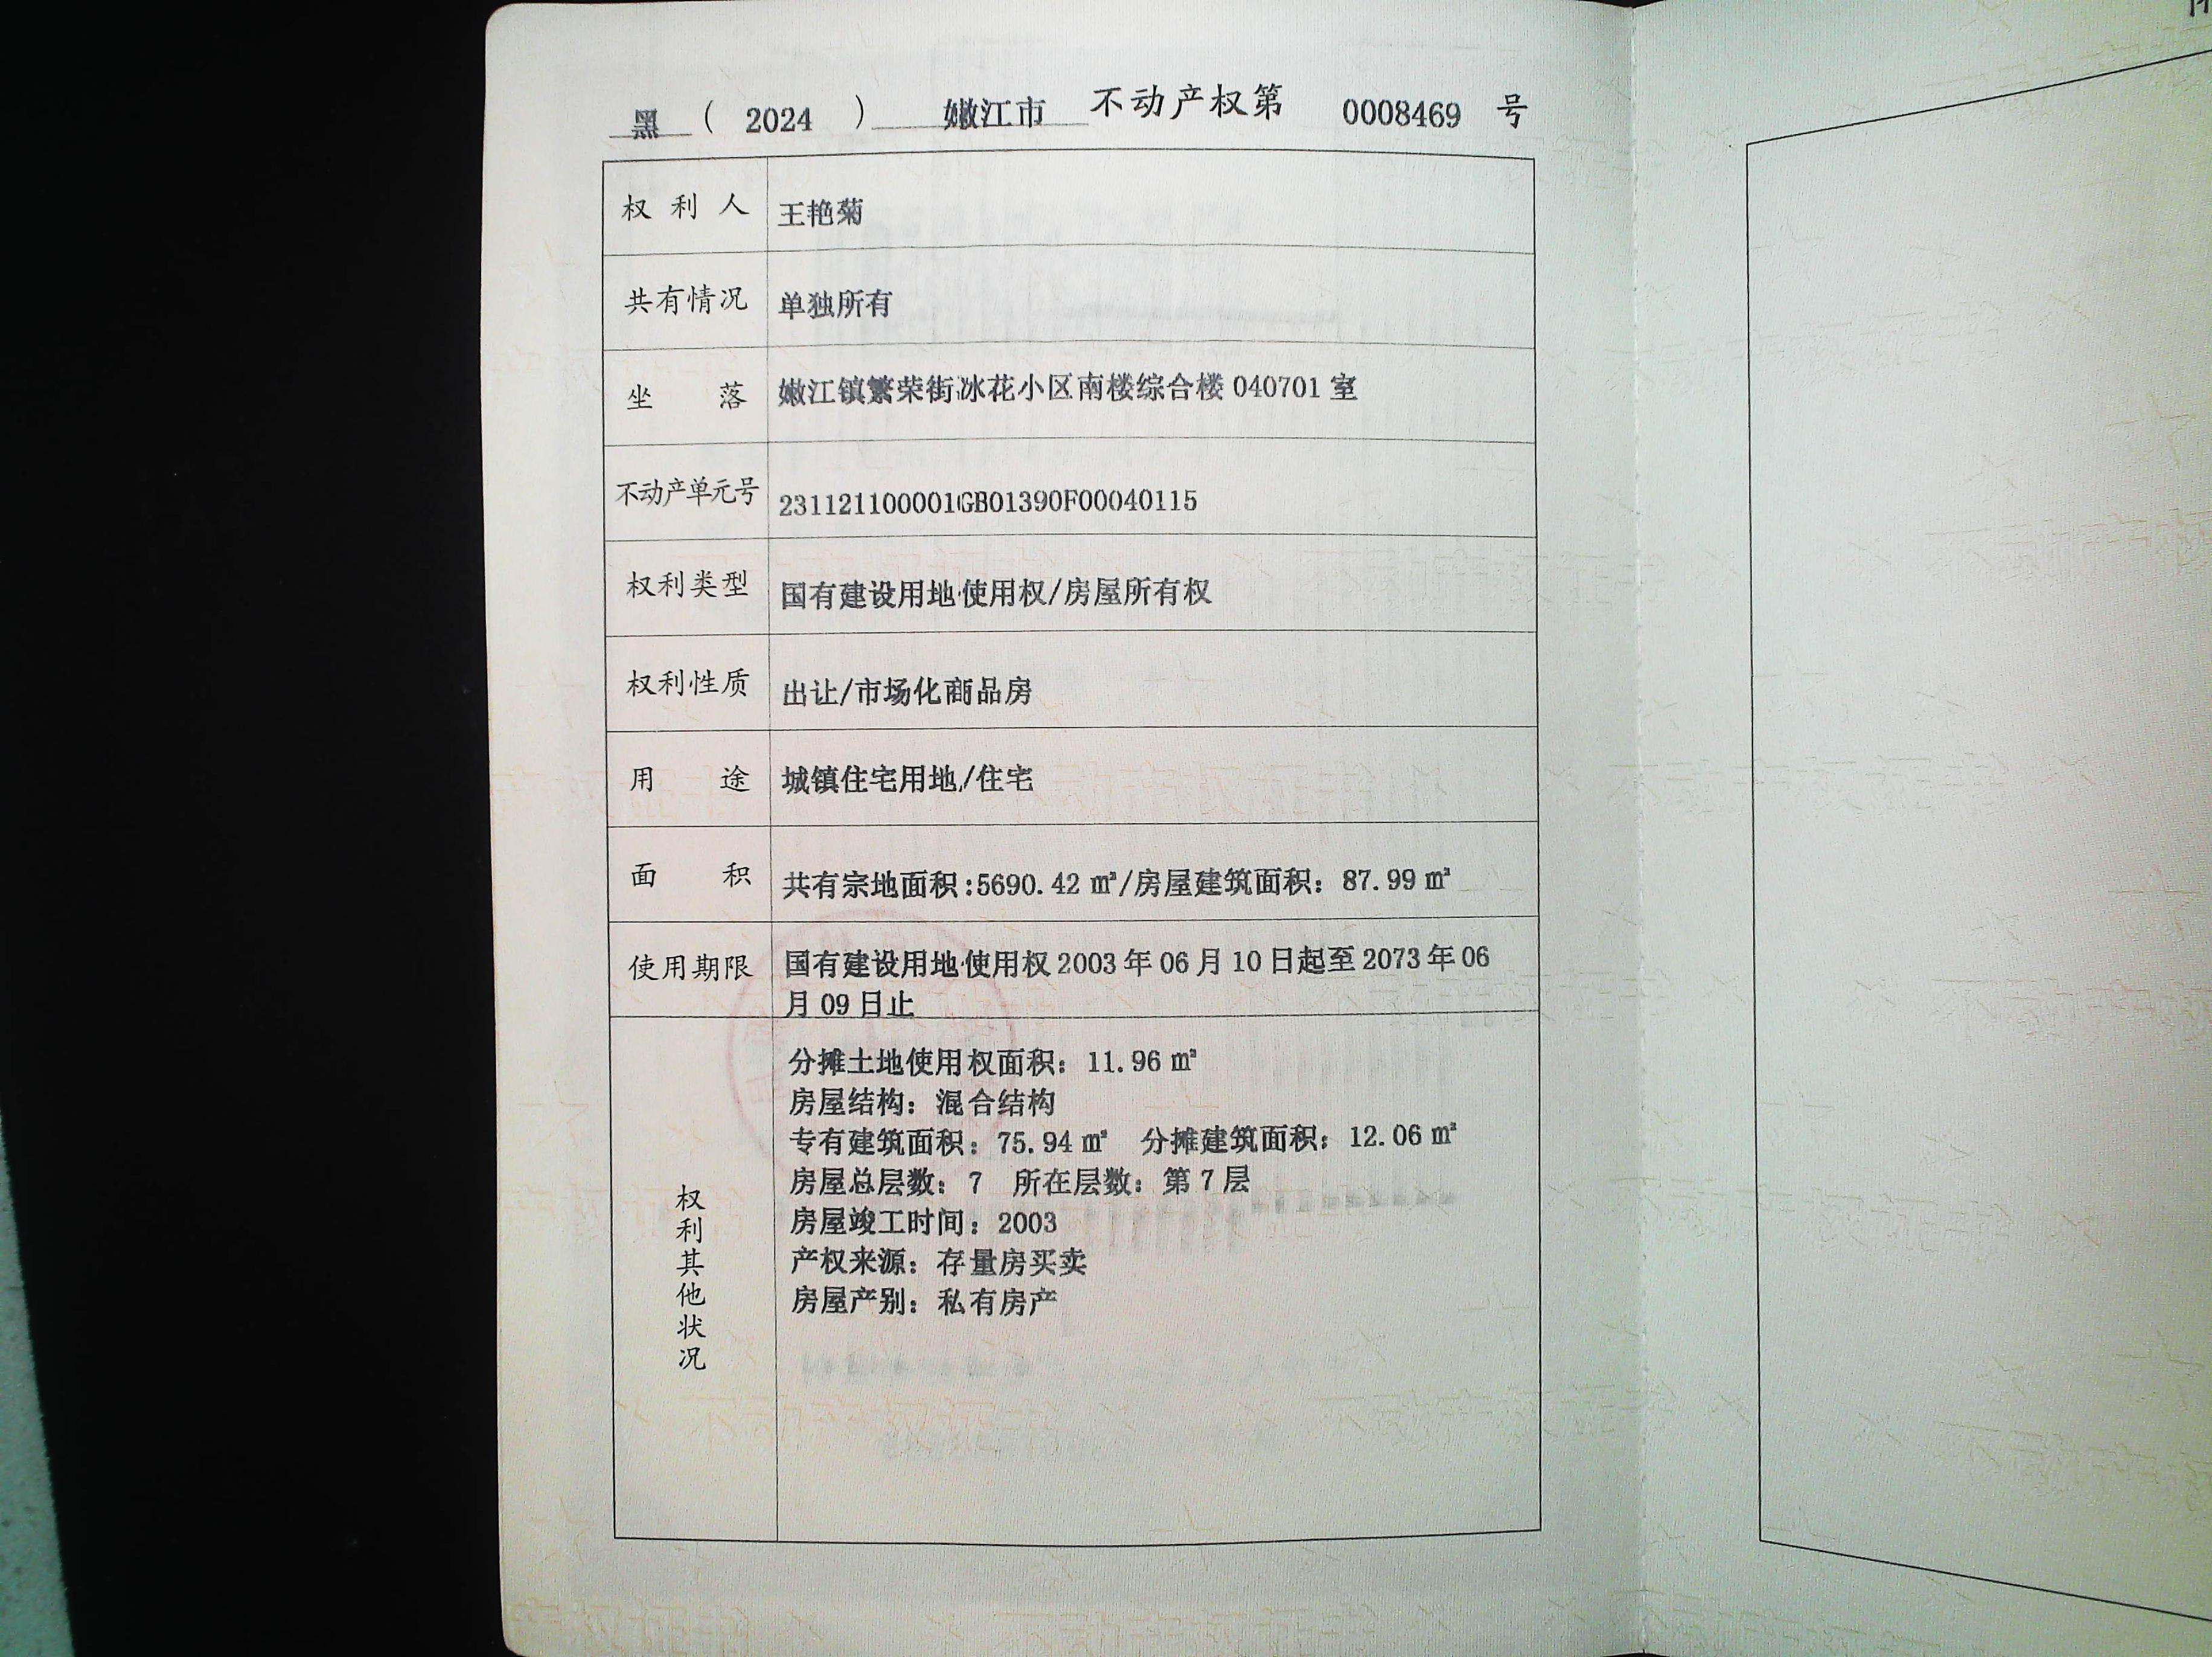 黑（2024）嫩江市不动产权第0008469号
权利人 王艳菊
共有情况 单独所有
坐落 嫩江镇繁荣街冰花小区南楼综合楼040701室
不动产单元号 231121100001GB01390F00040115
权利类型 国有建设用地使用权/房屋所有权
权利性质 出让/市场化商品房
用途 城镇住宅用地/住宅
面积 共有宗地面积:5690.42㎡/房屋建筑面积：87.99㎡
使用期限 国有建设用地使用权2003年06月10日起至2073年06
月09日止
权利其他状况
分摊土地使用权面积：11.96㎡
房屋结构：混合结构
专有建筑面积：75.94㎡ 分摊建筑面积：12.06㎡
房屋总层数：7 所在层数：第7层
房屋竣工时间：2003
产权来源：存量房买卖
房屋产别：私有房产